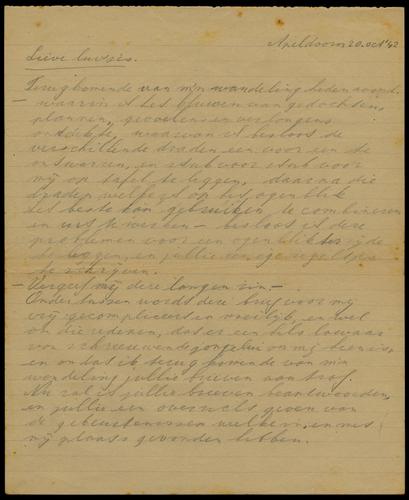 Apeldoorn 20 oct '42
Lieve luitjes.
Terugkomende van m'n wandeling hedenavond
- waarin ik het kluwen van gedachten,
plannen, gevoelens en verlangens
ontdekte, waarvan ik besloos de
verschillende draden een voor een te
ontwarren, en stuk voor stuk voor
mij op tafel te leggen, daarna die
draden welke ik op het ogenblik
het beste kan gebruiken te combineren
en uit te werken - besloot ik deze
problemen voor een ogenblik ter zijde
te leggen, en jullie een paar regeltjes
te schrijven.
- Vergeef mij deze lange zin -
Ondertussen wordt deze brief voor mij
vrij gecompliceerd en moeilijk, en wel
om die redenen, dat er een hels lawaai
van schreeuwende jongelui om mij heen is,
en omdat ik terug komende van m'n
wandeling jullie brieven aantrof.
Nu zal ik jullie brieven beantwoorden,
en jullie een overzicht geven van
de gebeurtenissen welke
plaats gevonden hebben.